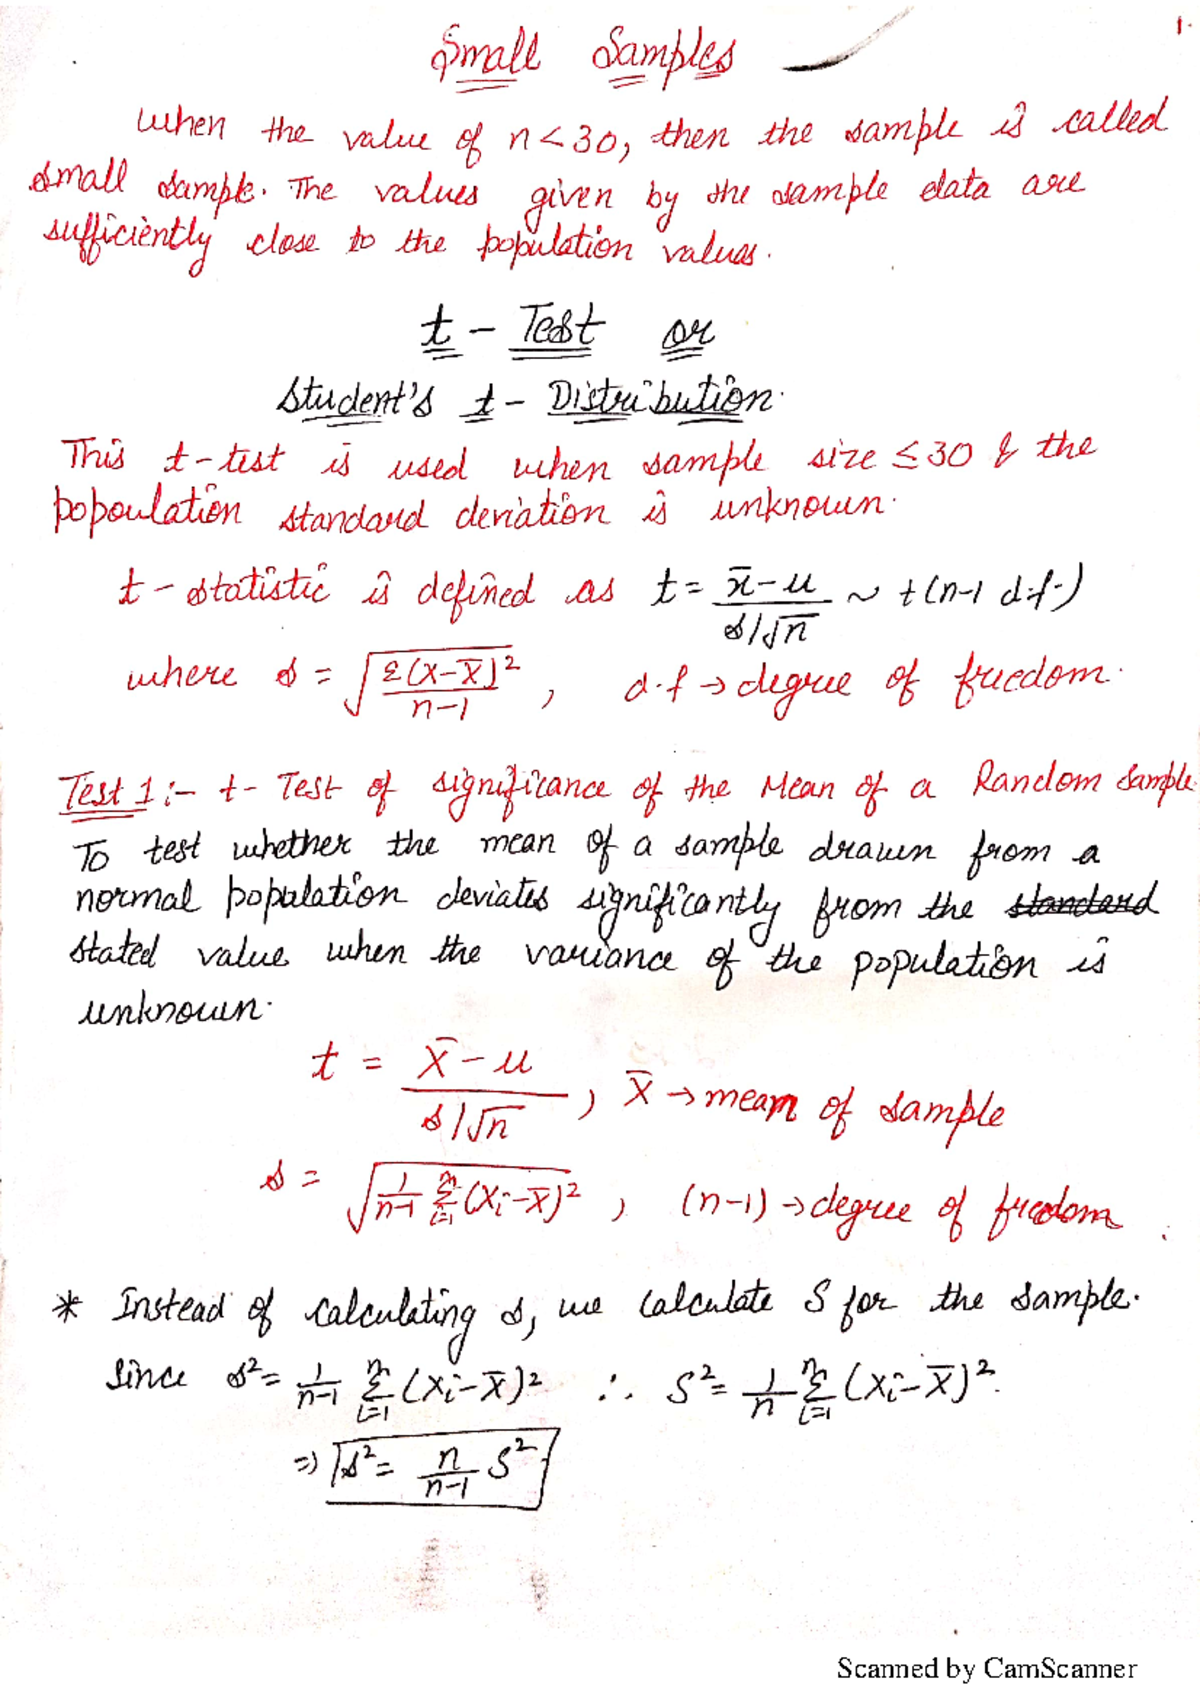 1.
Small Samples
When the value of n<30, then the sample is called
small sample. The values given by the sample data are
sufficiently close to the population values.
t - Test or
Student's t - Distribution.
This t-test is used when sample size ≤30 & the
popoulation standard deviation is unknown.
t - statistic is defined as t = (x̄-u)/(s/√n) ~ t(n-1 d.f.)
where s = √(Σ(X-X̄)²/(n-1)), d.f → degree of freedom.
Test 1:- t- Test of significance of the Mean of a Random Sample.
To test whether the mean of a sample drawn from a
normal population deviates significantly from the standard
stated value when the variance of the population is
unknown.
t = (X̄-u)/(s/√n), X̄ → mean of sample
s = √(1/(n-1) Σᵢ₌₁ⁿ (Xi-X̄)²), (n-1) → degree of freedom.
* Instead of calculating s, we calculate S for the sample.
Since s² = 1/(n-1) Σᵢ₌₁ⁿ (Xi-X̄)² ∴ S² = 1/n Σᵢ₌₁ⁿ (Xi-X̄)².
⇒ s² = n/(n-1) S²
Scanned by CamScanner